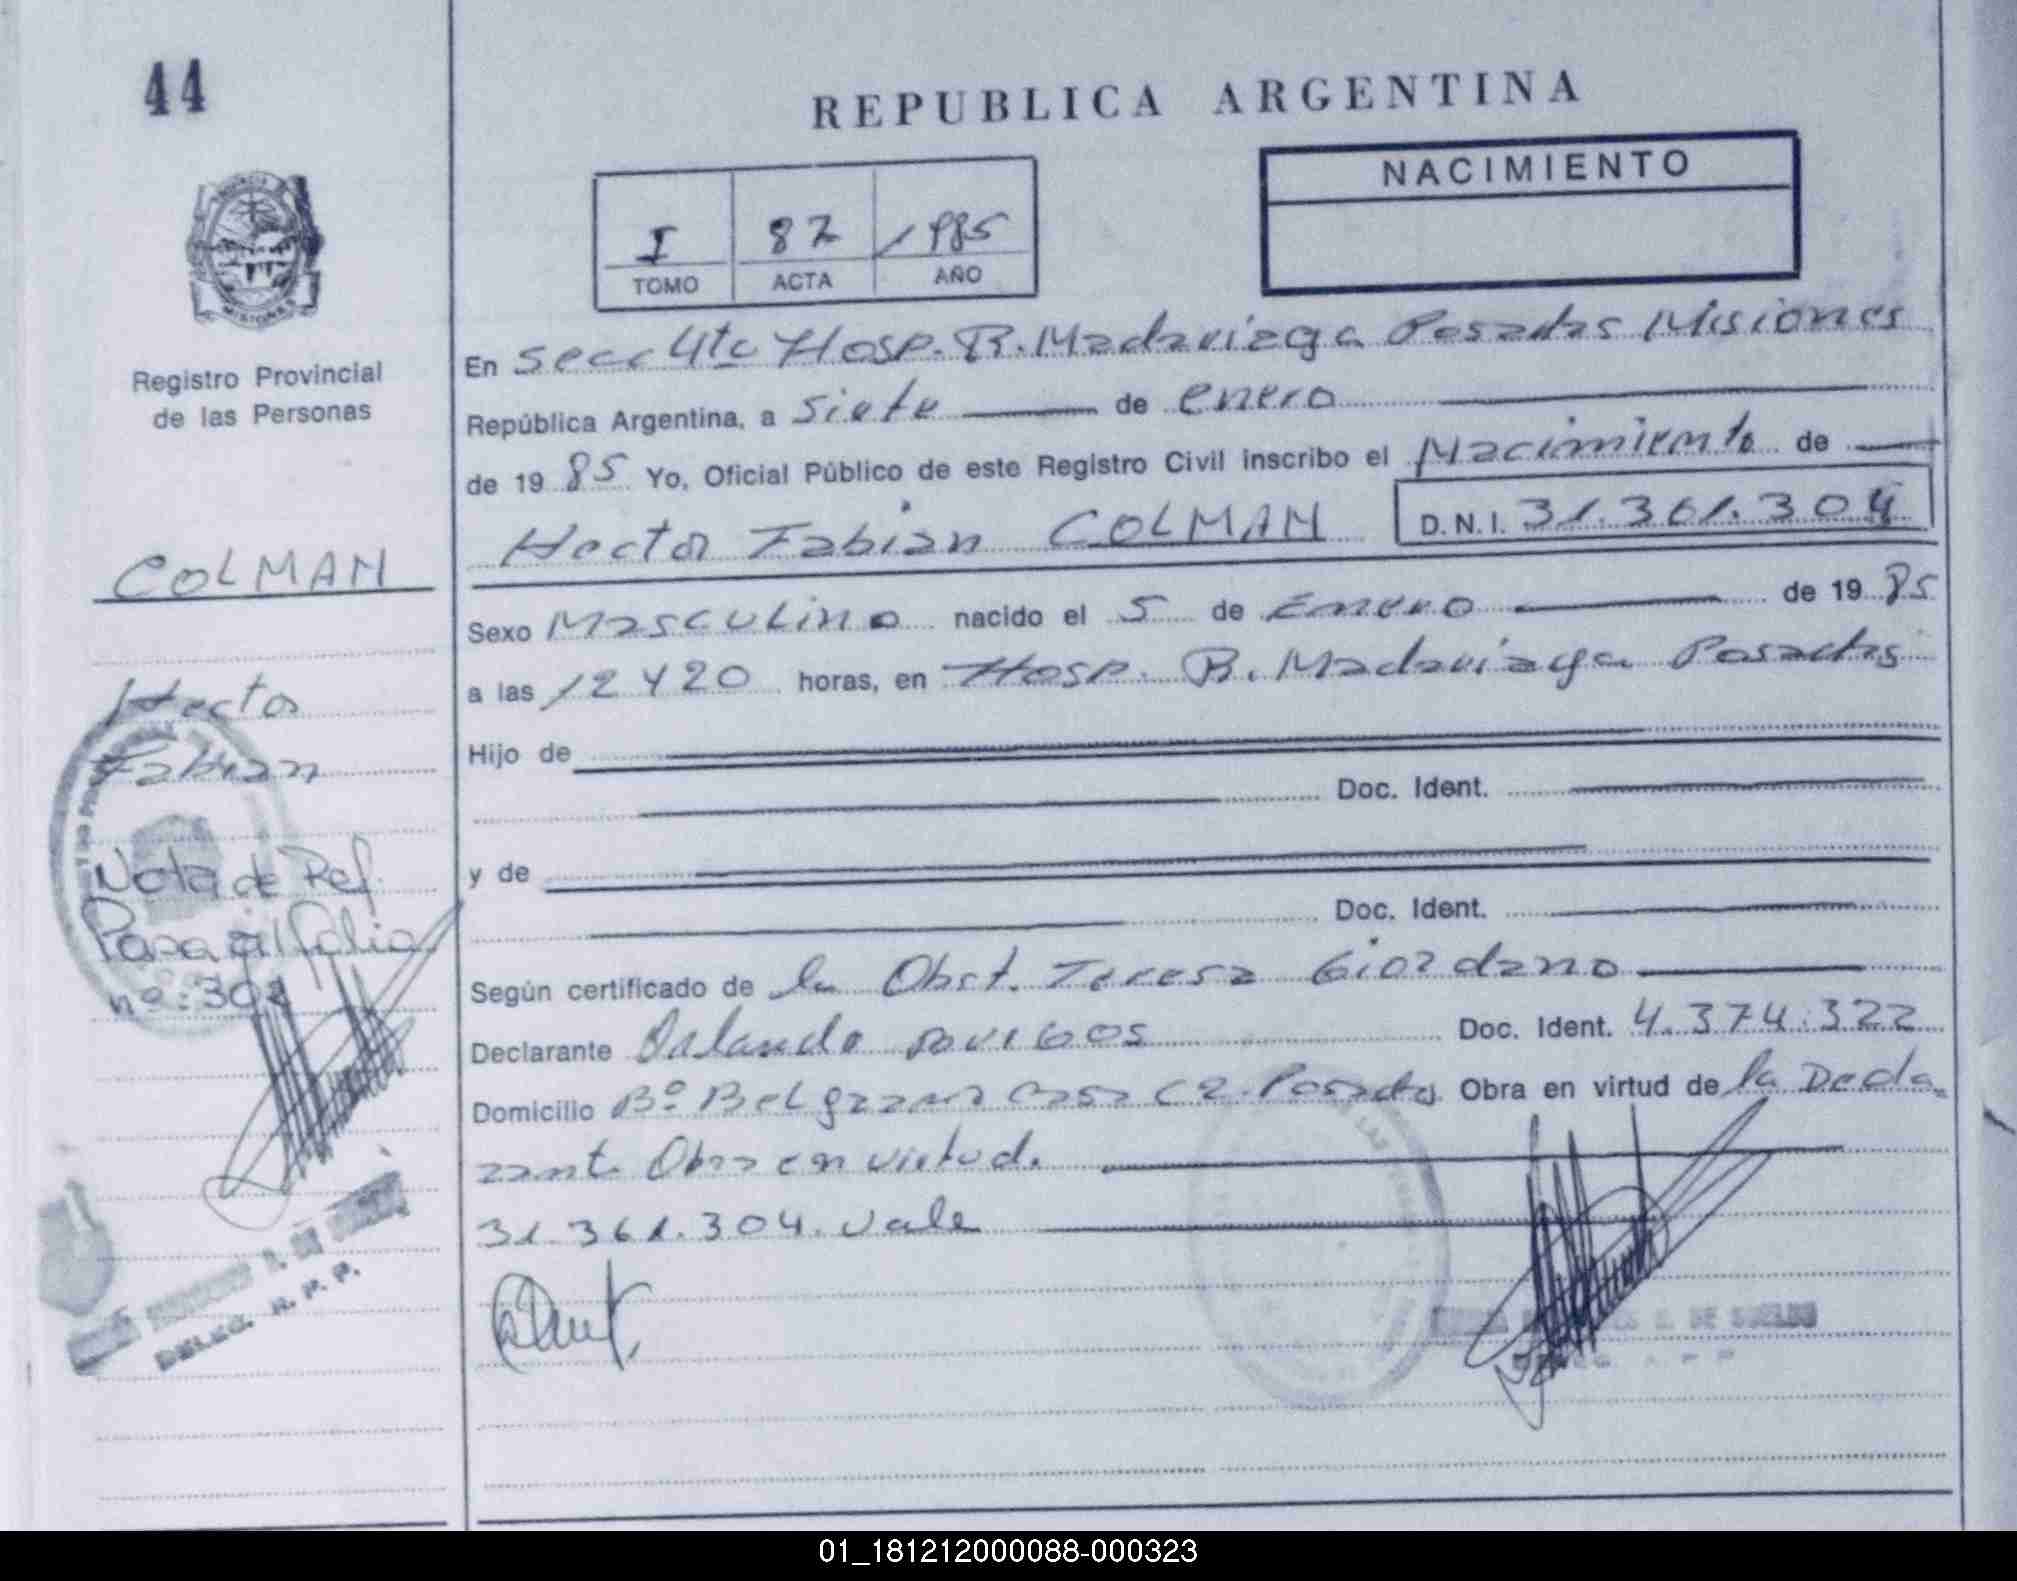 44
REPUBLICA ARGENTINA
NACIMIENTO
I 87 1985
TOMO ACTA AÑO
Registro Provincial
de las Personas
COLMAN
Hector
Fabian
Nota de Ref.
Pasa al folio
nº: 302
DELEG. R. P. P.
En Secc 4ta Hosp. R. Madariaga Posadas Misiones
República Argentina, a siete de enero
de 1985 Yo, Oficial Público de este Registro Civil inscribo el Nacimiento de
Hector Fabian COLMAN D.N.I. 31.361.304
Sexo Masculino nacido el 5 de Enero de 1985
a las 12 y 20 horas, en Hosp. R. Madariaga Posadas
Hijo de
Doc. Ident.
y de
Doc. Ident.
Según certificado de la Obst. Teresa Giordano
Declarante Orlando Doc. Ident. 4.374.322
Domicilio Bº Belgrano Casa 62 Posadas Obra en virtud de la Decla
rante Obra en virtud.
31.361.304. Vale
DE SUELDO
01_181212000088-000323